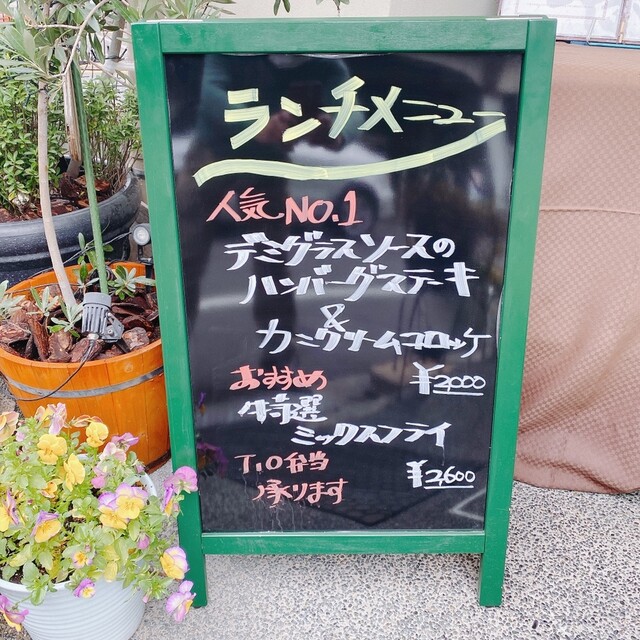 ランチメニュー
人気NO.1
デミグラスソースの
ハンバーグステーキ
&
カニクリームコロッケ
おすすめ ¥2,000
特選
ミックスフライ
T.O弁当 ¥2,600
承ります